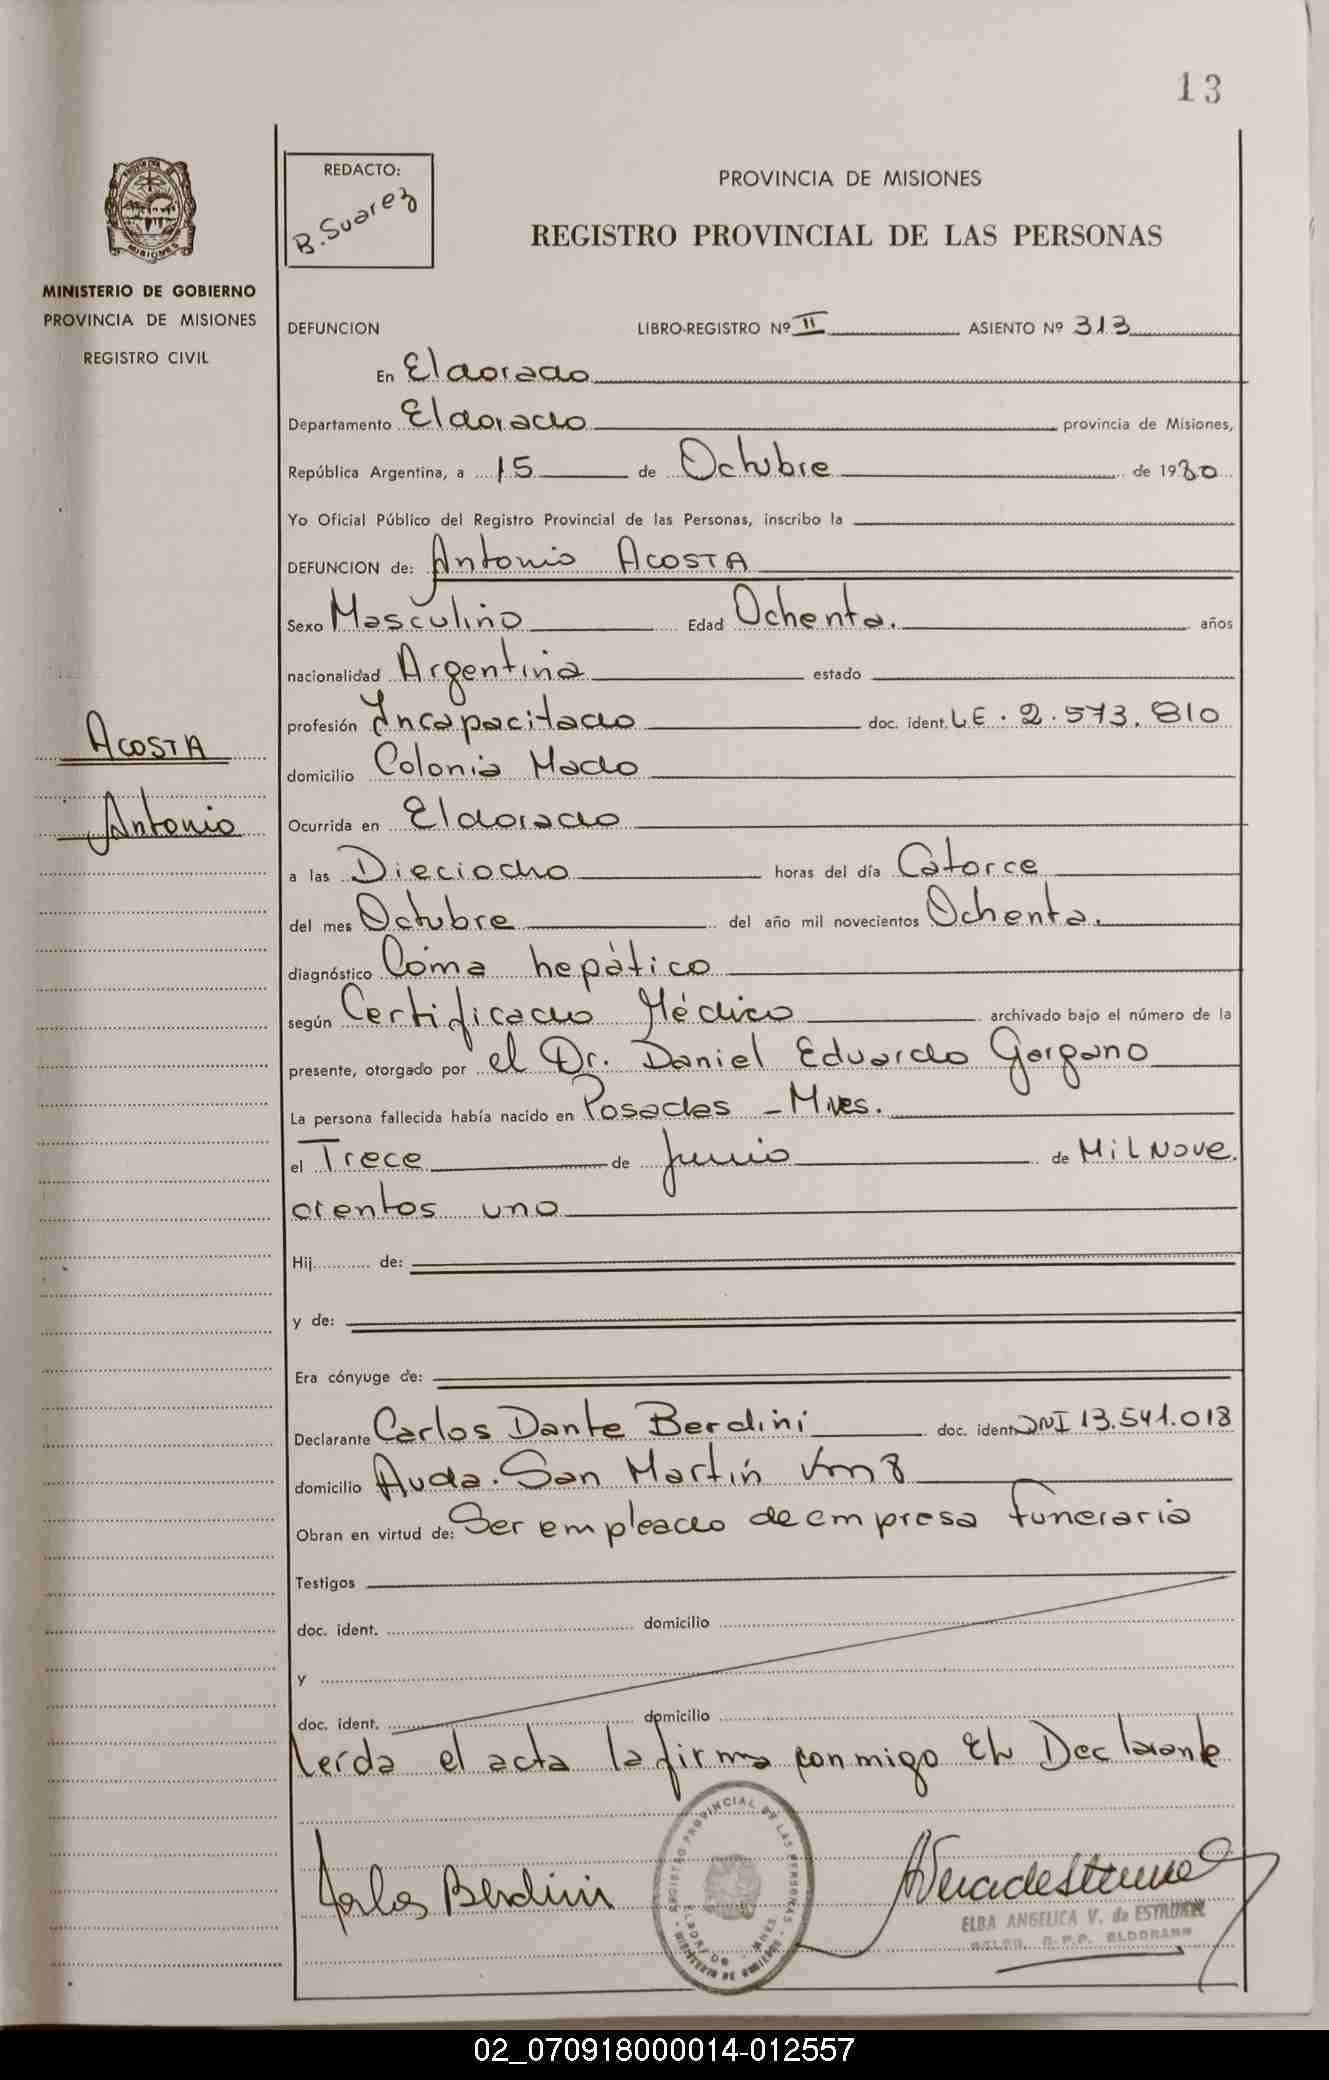 13
REDACTO:
B. Suarez
PROVINCIA DE MISIONES
REGISTRO PROVINCIAL DE LAS PERSONAS
MINISTERIO DE GOBIERNO
PROVINCIA DE MISIONES
REGISTRO CIVIL
DEFUNCION LIBRO-REGISTRO Nº II ASIENTO Nº 313
En Eldorado
Departamento Eldorado provincia de Misiones,
República Argentina, a 15 de Octubre de 1980
Yo Oficial Público del Registro Provincial de las Personas, inscribo la
DEFUNCION de: Antonio ACOSTA
Sexo Masculino Edad Ochenta. años
nacionalidad Argentina estado
profesión Incapacitado doc. ident. LE. 2.573.810
ACOSTA
Antonio
domicilio Colonia Mado
Ocurrida en Eldorado
a las Dieciocho horas del día Catorce
del mes Octubre del año mil novecientos Ochenta.
diagnóstico Cóma hepático
según Certificado Médico archivado bajo el número de la
presente, otorgado por el Dr. Daniel Eduardo Gargano
La persona fallecida había nacido en Posadas - Mnes.
el Trece de Junio de Mil Nove.
cientos uno
Hij........... de:
y de:
Era cónyuge de:
Declarante Carlos Dante Berdini doc. ident. DNI 13.541.018
domicilio Avda. San Martín Km 8
Obran en virtud de: Ser empleado de empresa funeraria
Testigos
doc. ident. domicilio
y
doc. ident. domicilio
Leída el acta la firma conmigo El Declarante
Carlos Berdini
REGISTRO PROVINCIAL DE LAS PERSONAS
ELDORADO - MNES.
MINISTERIO DE GOBIERNO
ELBA ANGELICA V. de
R.P.P. ELDORADO
02_070918000014-012557